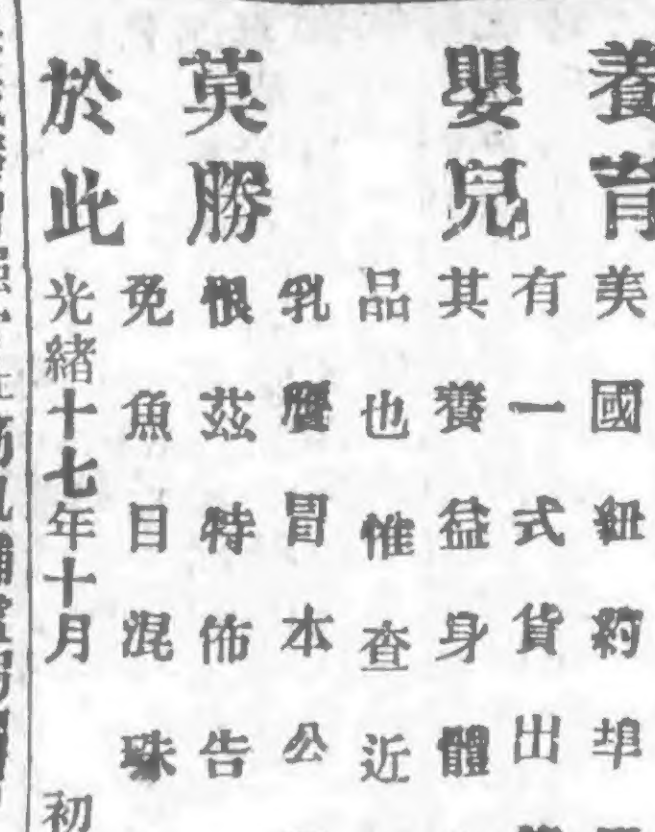 養育
嬰兒
莫勝
於此
美國紐約埠
有一式貨出
其養益身體
品也惟查近
乳膺冒本公
恨茲特佈告
免魚目混珠
光緒十七年十月 初